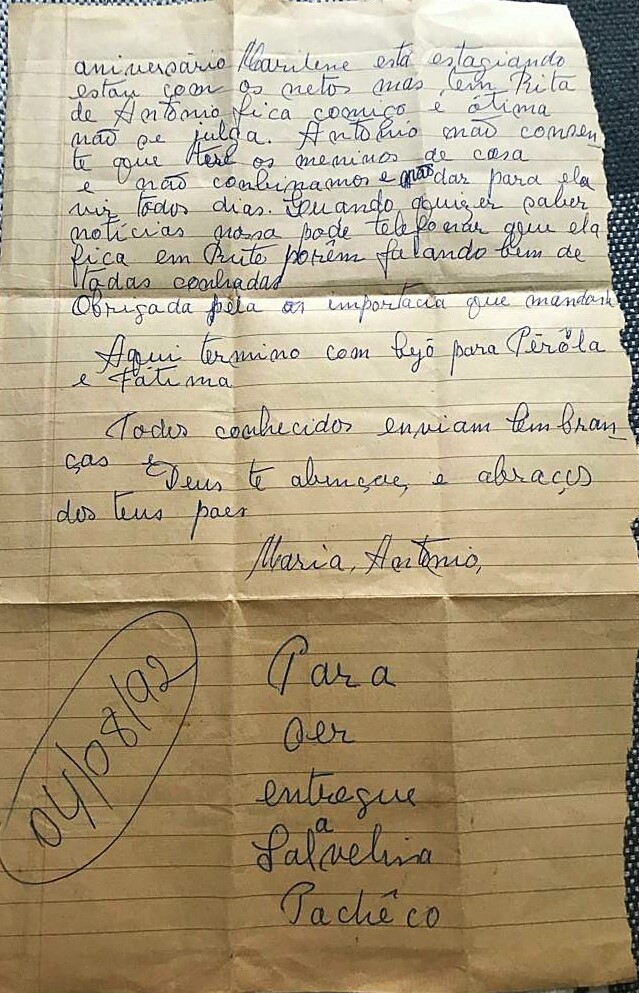 aniversário Marilene está estagiando
estau com os netos mas tem Rita
de Antônio fica comigo e ótima
não se julga. Antônio não consen_
te que os meninos de casa
e não combinamos e não dar para ela
vir todos dias. Quando quizer saber
notícias nossa pode telefonar que ela
fica em porêm falando bem de
todas conhadas
Obrigada pela as importacia que mandou
Aqui termino com bejo para Pérôla
e Fátima
Todos conhecidos enviam lembran_
ças e Deus te abençoe, e abraços
dos teus paes
Maria, Antônio,
04/08/92
Para
ser
entregue
a
Salvelina
Pachêco